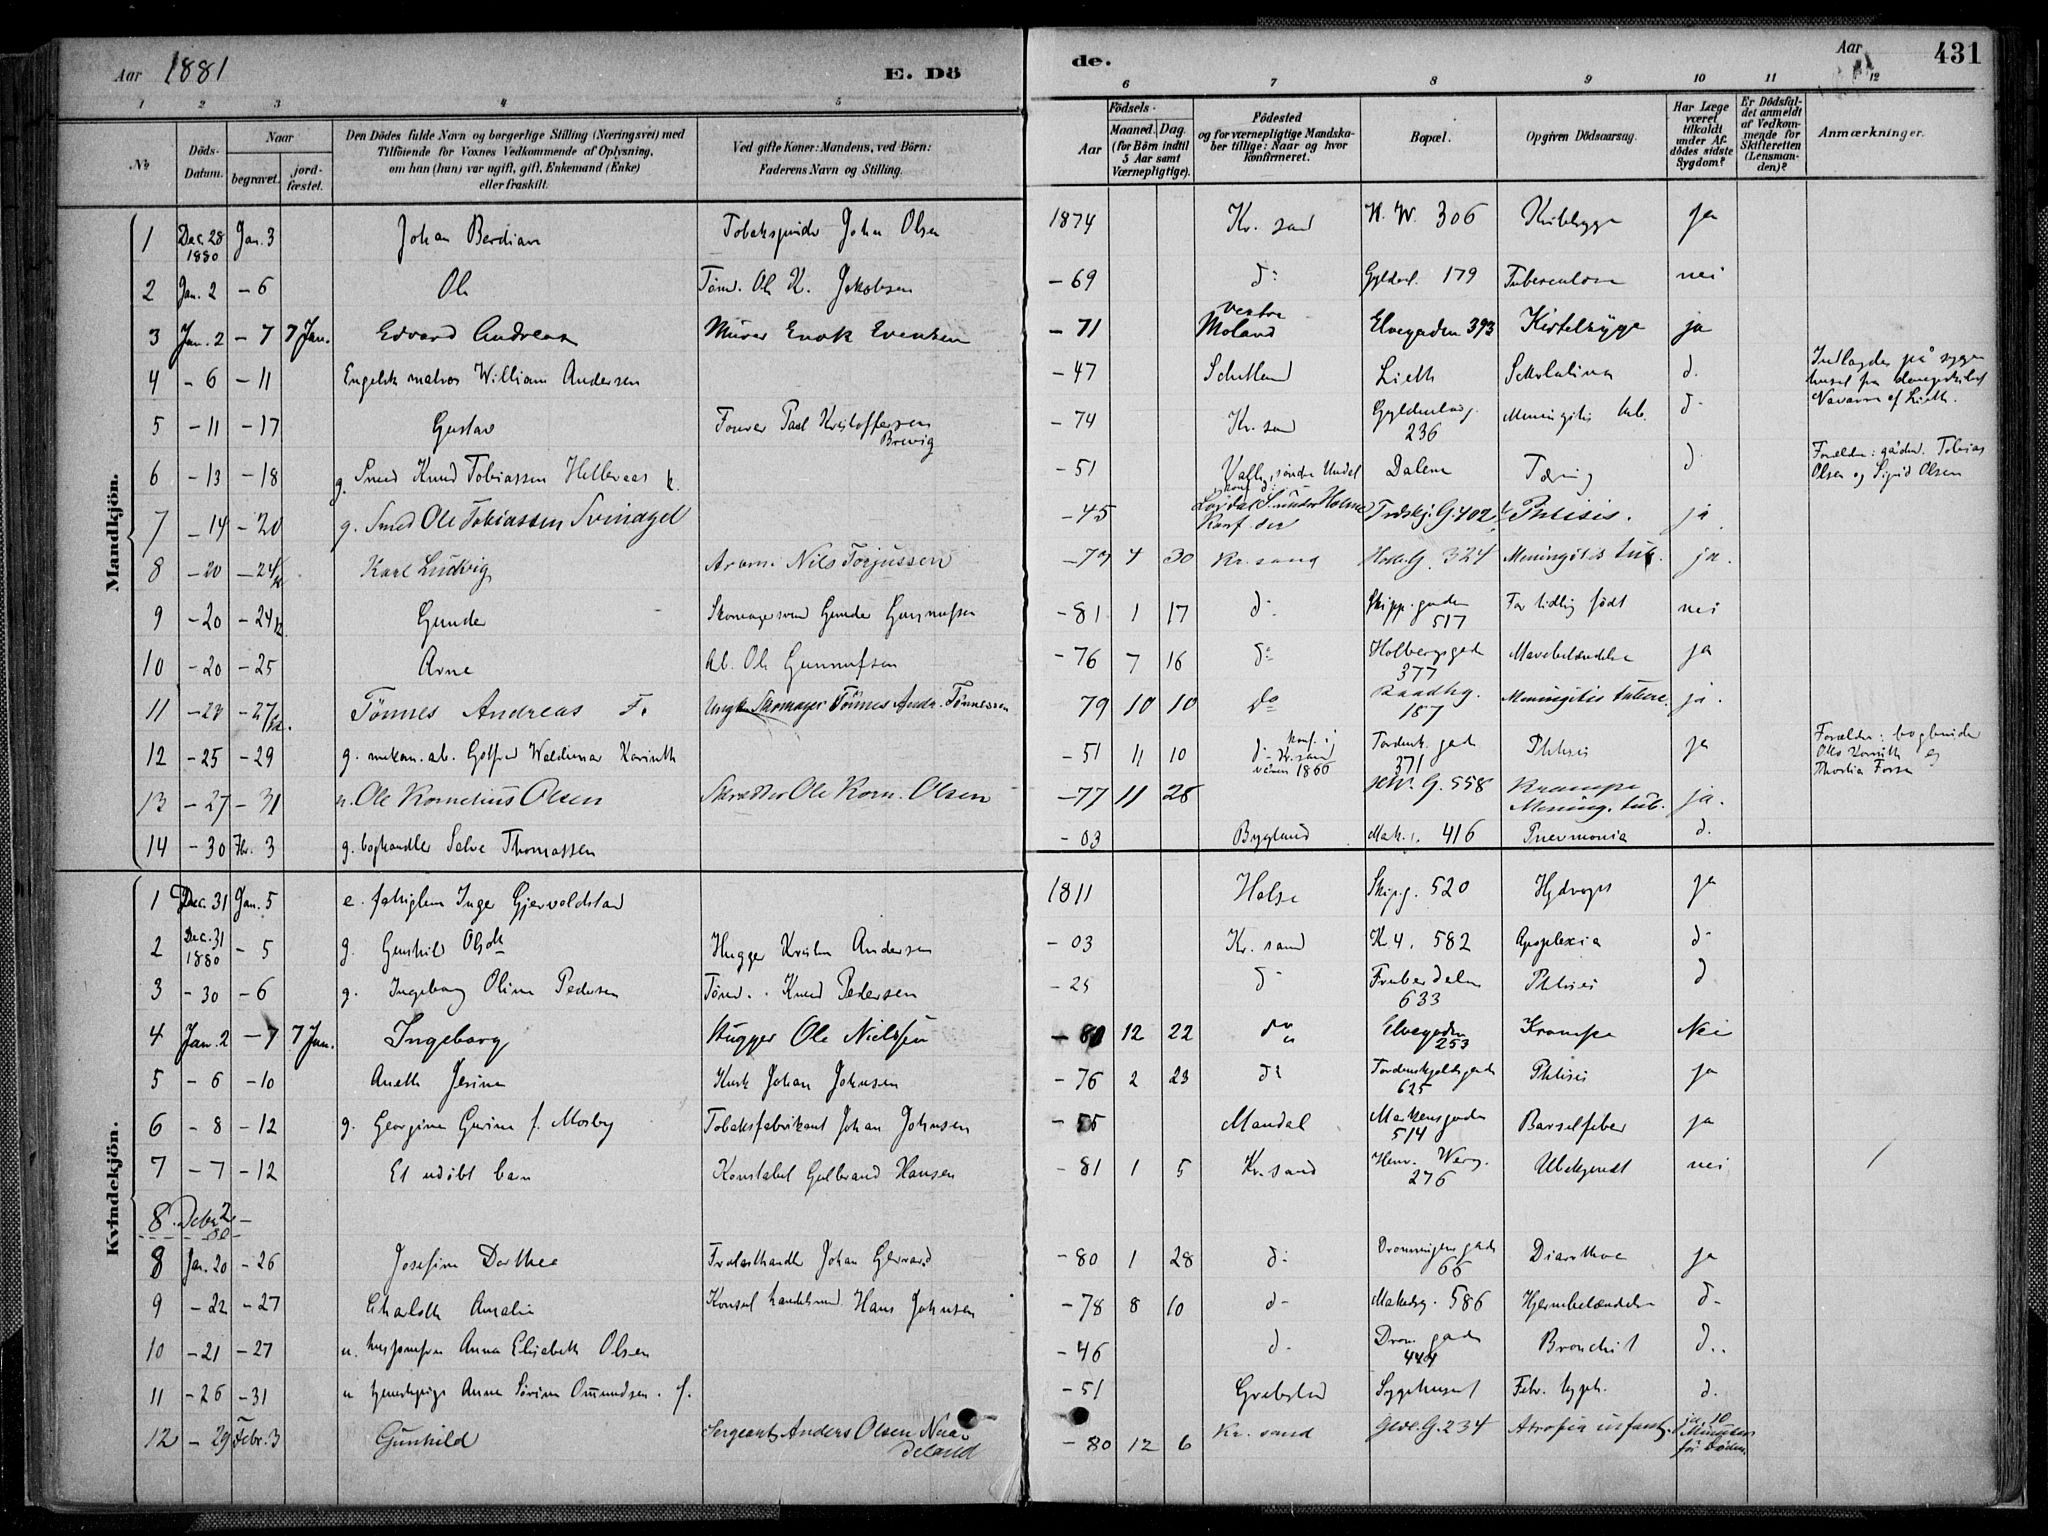 Aar 1881
E. Dö
de.
Aar
431
1 2 3 4 5 6 7 8 9 10 11 12
№
Döds-Datum.
Naar
begravet.
jord-fæstet.
Den Dödes fulde Navn og borgerlige Stilling (Næringsvei) med
Tilföiende for Voxnes Vedkommende af Oplysning,
om han (hun) var ugift, gift, Enkemand (Enke)
eller fraskilt.
Ved gifte Koner: Mandens, ved Börn:
Faderens Navn og Stilling.
Födsels-
Aar
Maaned. Dag.
(for Börn indtil
5 Aar samt
Værnepligtige).
Födested
og for værnepligtige Mandska-
ber tillige: Naar og hvor
konfirmeret.
Bopæl.
Opgiven Dödsaarsag.
Har Læge
været
tilkaldt
under Af-
dödes sidste
Sygdom?
Er Dödsfal-
det anmeldt
af Vedkom-
mende for
Skifteretten
(Lensman-
den)?
Anmærkninger.
Mandkjön.
1 Dec. 28 1880 Jan. 3 Johan Berdian John Olsen 1874 Kr. sand K. W. 306 ja
2 Jan. 2 - 6 Ole Tömd. Ole K. Jakobsen - 69 d: Gyldenl. 179 Tuberculose nei
3 Jan. 2 - 7 7 Jan. Edvard Andreas Murer Enok Evensen - 71 Vestre Moland Elvegaden 393 Kirtelsyge ja
4 - 6 - 11 Engelsk matros William Andersen - 47 Schetland Lieth d. Indlagdes på syge
huset fra
Navarra af Lieth.
5 - 11 - 17 Gustav Paul Kristoffersen Brevig - 74 Kr. sand Gyldenlövsg. 236 Meningitis tub. d:
6 - 13 - 18 g. Smed Knud Tobiassen - 51 Dalene Tæring d Forældre: gårdm. Tobias
Olsen og Sigrid Olsen
7 - 14 - 20 g. Smed Ole Tobiassen Svindyel - 45 Torskj. G. 402 Phtisis. ja
8 - 20 - 24/ Karl Ludvig Nils Torjussen - 79 4 30 Kr. sand 324 Meningitis tub. ja.
9 - 20 - 24 Gunde Skomagersvend Gunder Gunnufsen - 81 1 17 d: Skipp. gaden 517 For tidlig födt nei
10 - 20 - 25 Arne Ab. Ole Gunnufsen - 76 7 16 d: Holbergsgade 377 Mavebetændelse ja
11 - 27/ Tönnes Andreas F. Skomager Tönnes Andr. Tönnessen 79 10 10 Do Raadhg. 187 Meningitis tuberc. ja.
12 - 25 - 29 g. mekan. ab. Gotfred Waldimar Korinth - 51 11 10 d: konf. i Kr. sand 1866 Tordensk. gade 371 Phtisis ja Forældre: bogbinder
Otto Korinth og
13 - 27 - 31 u. Ole Kornelius Olsen Skrædder Ole Korn. Olsen - 77 11 28 G. 558 Krampe
Mening. tub. ja.
14 - 30 Fbr. 3 g. boghandler Salve Thomassen - 03 Bygland Mark. 416 Pnevmonia d.
Kvindekjön.
1 Dec. 31 Jan. 5 e. fattiglem Inger Gjervoldstad 1811 Halse Skip g. 520 Hydrops ja
2 Dec. 31 1880 - 5 g. Gunhild Hugger Andersen - 03 Kr. sand Kr 4. 582 Apoplexia d-
3 - 30 - 6 g. Ingeborg Olina Pedersen Tömd. Knud Pedersen - 25 d- Fruberdalen 633 Phtisis d
4 Jan. 2 - 7 7 Jan. Ingeborg Hugger Ole Nielssen - 80 12 22 do Elvegaden 253 Krampe Nei
5 - 6 - 10 Aneth Jesine Kusk Johan Johnsen - 76 2 23 do Tordenskjoldsgade 625 Phtisis ja
6 - 8 - 12 g. Georgine Gurine f. Mosby Tobaksfabrikant Johan Johnsen - 55 Mandal Markensgaden 514 Barselfeber ja
7 - 7 - 12 Et udöbt barn Konstabel Gulbrand Hansen - 81 1 5 Kr. sand Henr. Werg. 276 Ubekjendt nei
8 Febr. 2 -
8 Jan. 20 - 26 Josefine Dorthea Johan Gervard - 80 1 28 d: Dronningens gade 66 Diarrhoe ja
9 - 22 - 27 Charloth Amalie Hans Johnsen - 78 8 10 d- Markensg. 586 Hjernebetændelse d-
10 - 21 - 27 u. husjomfru Anna Elisabeth Olsen - 46 d- Dron. gade 444 Bronchit d..
11 - 26 - 31 u Anne Sörine Omundsen - 51 Grebstad Sygehuset Febr. typh. d.
12 - 29 Febr. 3 Gunhild Sergeant Anders Olsen Naa-
deland - 80 12 6 Kr. sand Gldl. G. 234 Atrofia infant. ja. 10
Minutter
för Döden.